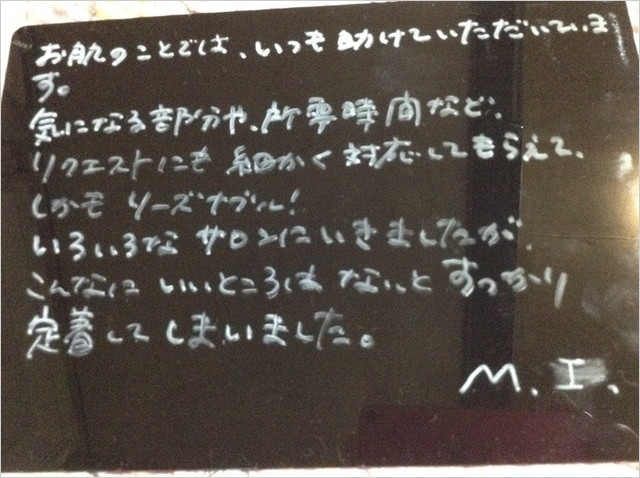 お肌のことでは、いつも助けていただいていま
す。
気になる部分や、所要時間など、
リクエストにも細かく対応してもらえて、
しかもリーズナブル!
いろいろなサロンにいきましたが、
こんなにいいところはないとすっかり
定着してしまいました。
M. I.